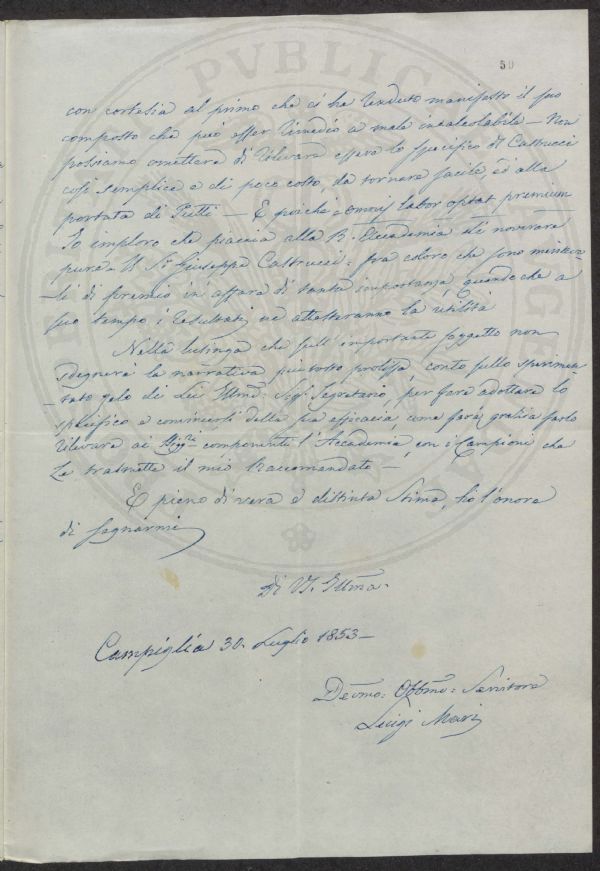 50
con cortesia al primo che ci ha renduto manifesto il suo
composto che può esser rimedio a male incalcolabile — Non
possiamo omettere di rilevare essere lo specifico di Castrucci
così semplice e di poco costo, da tornare facile, ed alla
portata di Tutti — E poiché omnis labor optat premium
Io imploro che piaccia alla R. Accademia di noverare
pure il Sr Giuseppe Castrucci fra coloro che sono meritevo-
-li di premio in affare di tanta importanza, quando che a
suo tempo i resultati ne attesteranno la utilità
Nella lusinga che sull'importante soggetto non
sdegnerà la narrativa piuttosto prolissa, conto sullo sperimen-
-tato zelo di Lei Illmo: Sigr Segretario, per fare adottare lo
specifico e convincerli della sua efficacia, come farà grazia farlo
rilevare ai componenti l'Accademia, con i Campioni che
Le trasmette il mio Raccomandato —
E pieno di vera e distinta Stima, ho l'onore
di segnarmi
Di V. S. Illma.
Campiglia 30. Luglio 1853 —
Devmo: Obbmo: Servitore
Luigi Mari
PVBLIC